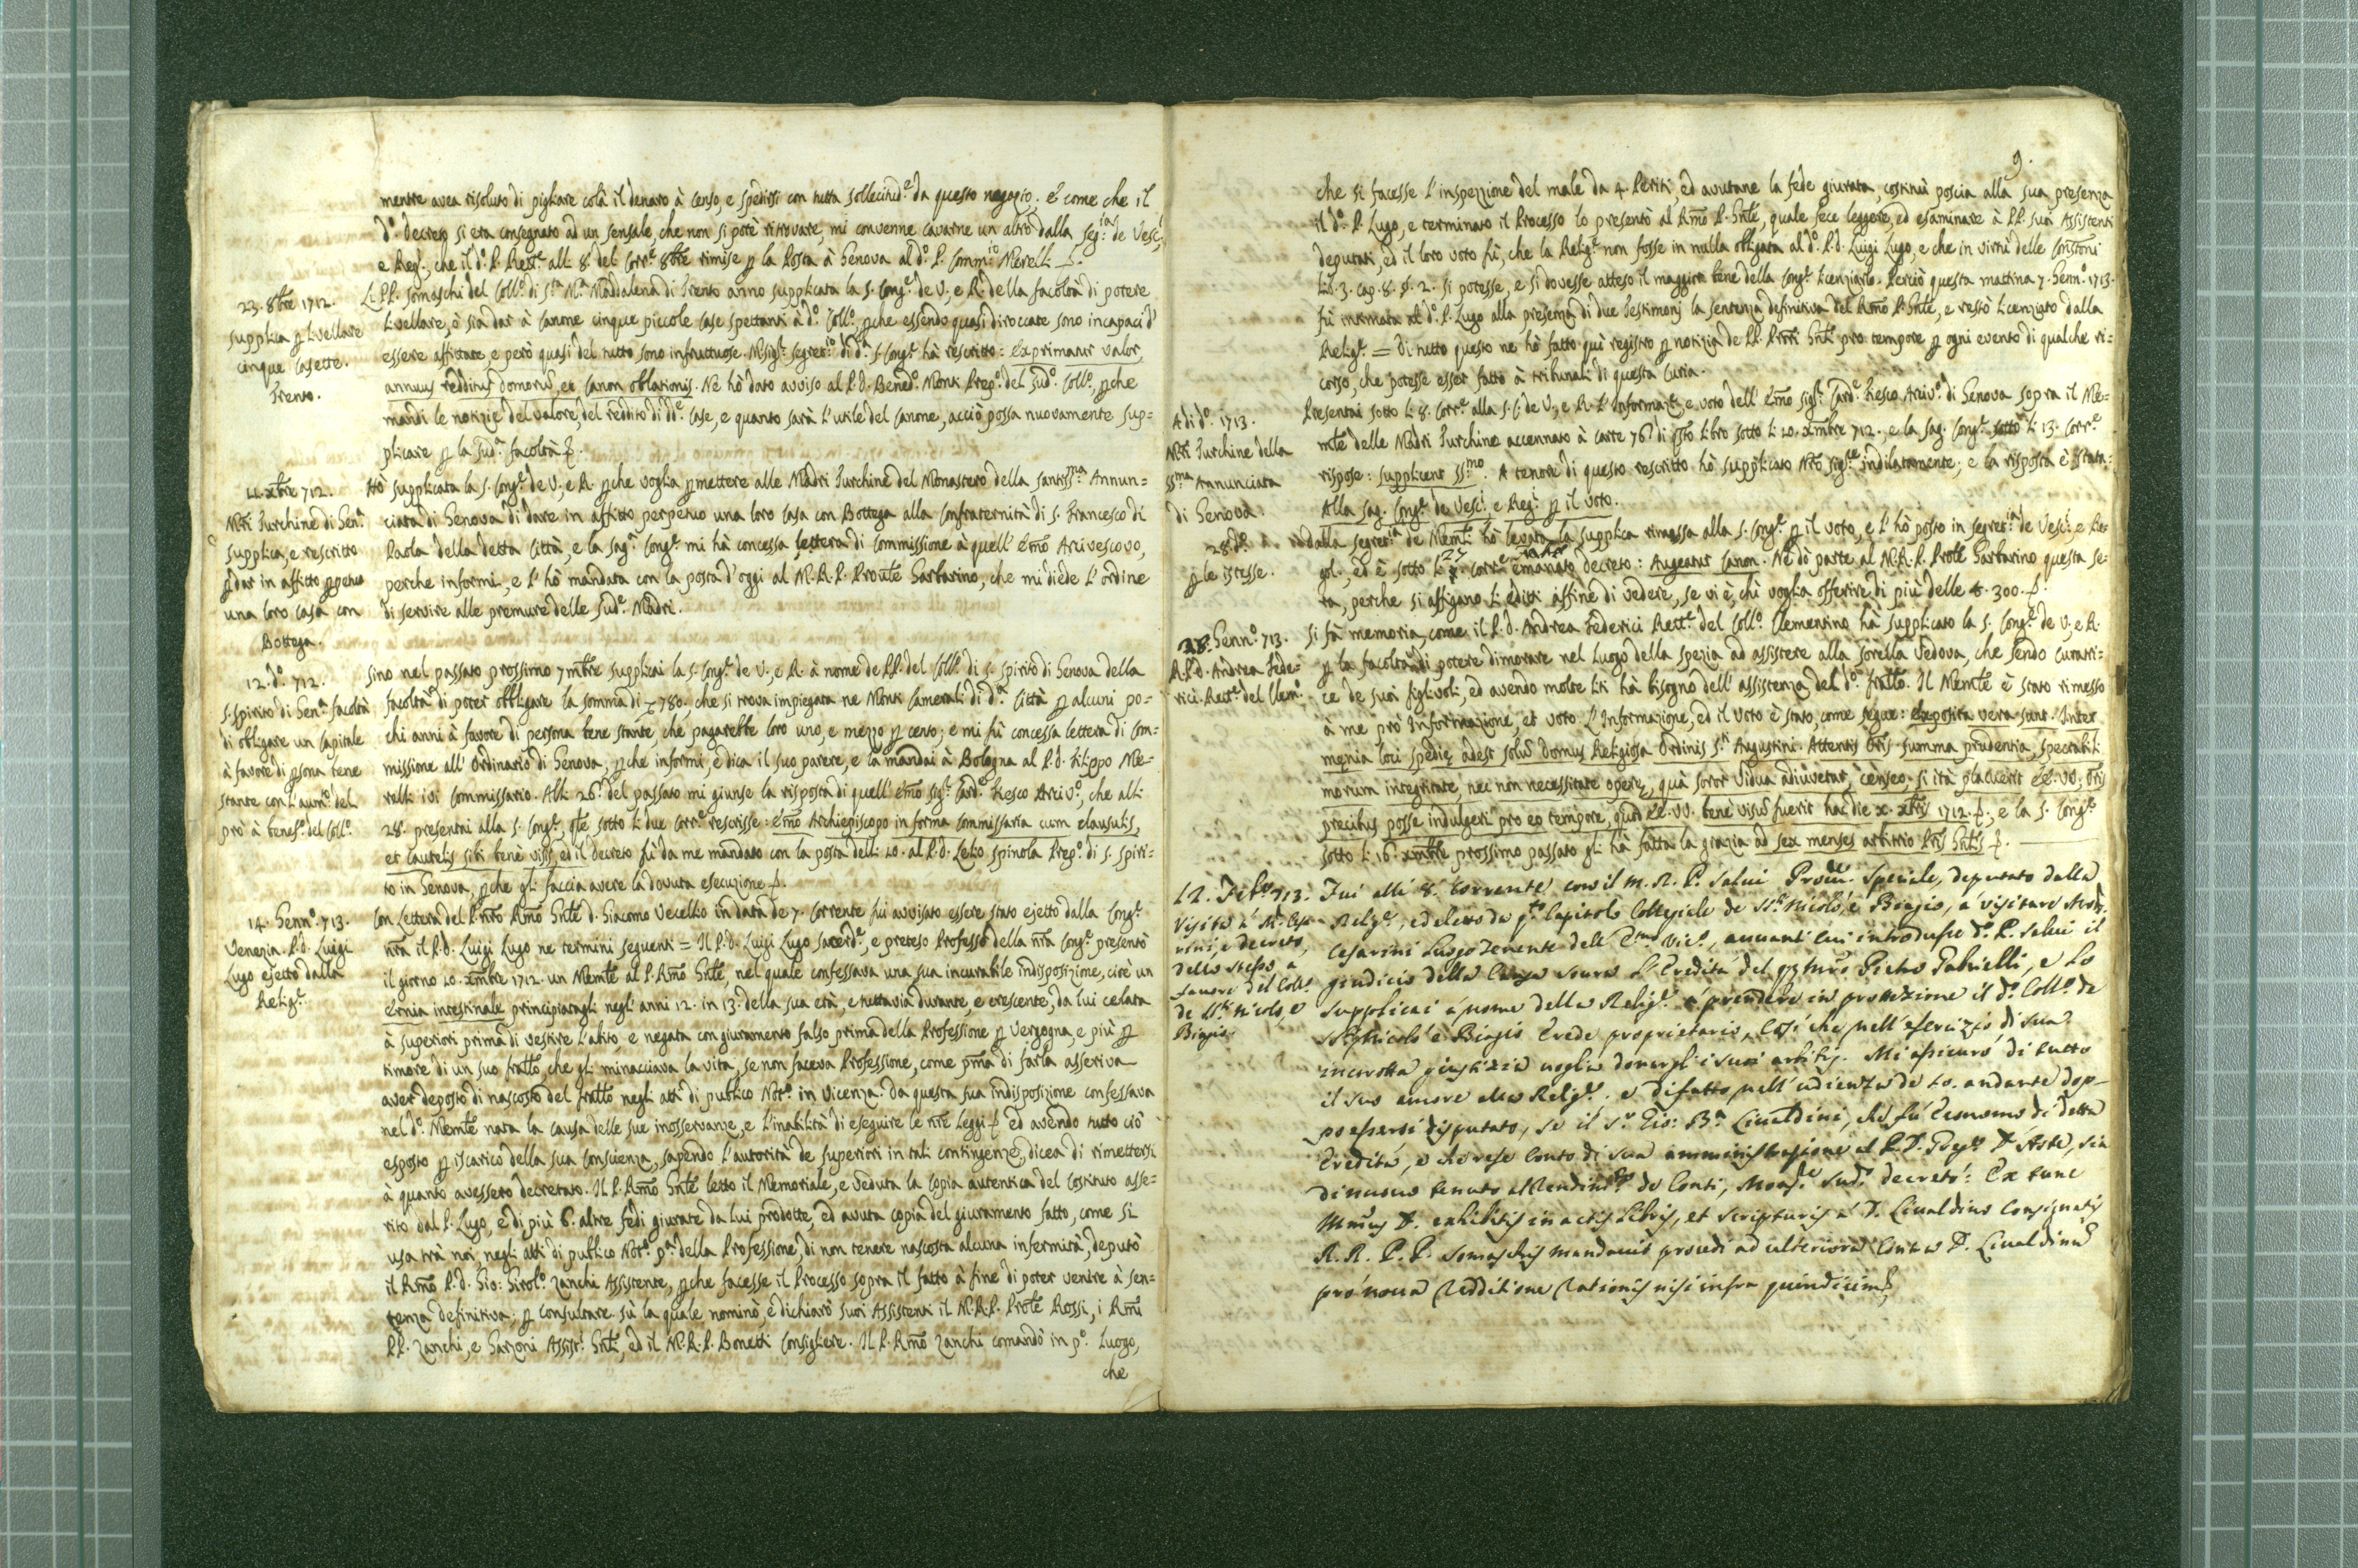 mentre avea risoluto di pigliare colà il denaro à censo, e spedirsi con tutta sollecitud.e da questo negozio. E come che il
d.o Decreto si era consegnato ad un sensale, che non si potè ritrovare, mi convenne cavarne un altro dalla Seg.ria de Vesc.i
e Reg.i, che il d.o P. Rett.e alli 8. del corr.e 8bre rimise p la Posta à Genova al d.o P. Comm.rio Merelli
23. 8bre 1712.
Supplica p livellare
cinque casette.
Trento.
Li PP. Somaschi del Coll.o di S.ta M.a Maddalena di Trento anno supplicata la S. Cong.e de V., e R. della facoltà di potere
livellare, ò sia dar à Canone cinque piccole case spettanti à d.o Coll.o, pche essendo quasi diroccate sono incapaci d'
essere affittate, e però quasi del tutto sono infruttuose. M.sig.r Segret.io di d.a S. Cong.e hà rescritto: Exprimatur valor,
annuus redditus domorũ, et Canon oblationis. Ne hò dato avviso al P. D. Bened.o Monti Prep.o del sud.o Coll.o, pche
mandi le notizie del valore, del reddito di d.e case, e quanto sarà l'utile del Canone, acciò possa nuovamente sup=
plicare p la sud.a facoltà.
11. xbre 712.
M.ri Turchine di Gen.a
supplica, e rescritto
p dar in affitto ppetuo
una loro casa con
Bottega.
Hò supplicata la S. Cong.e de V., e R. pche voglia pmettere alle Madri Turchine del Monastero della Santiss.ma Annun=
ciata di Genova di dare in affitto perpetuo una loro casa con Bottega alla Confraternità di S. Francesco di
Paola della detta Città, e la Sag.a Cong.e mi hà concessa lettera di Commissione à quell'Emõ Arcivescovo,
perche informi, e l'hò mandata con la posta d'oggi al M. R. P. Prouĩle Garbarino, che mi diede l'ordine
di servire alle premure delle sud.e Madri.
12. d.o 712.
S. Spirito di Gen.a facoltà
di obligare un Capitale
à favore di psona bene
stante con l'aum.o del
prò à benef.o del Coll.o
Sino nel passato prossimo 7mbre supplicai la S. Cong.e de V., e R. à nome de PP. del Coll.o di S. Spirito di Genova della
facoltà di poter obbligare la somma di 780. che si trova impiegata ne Monti Camerali di d.a Città p alcuni po=
chi anni à favore di persona bene stante, che pagarebbe loro uno, e mezzo p cento; e mi fù concessa lettera di Com=
missione all'Ordinario di Genova, pche informi, e dica il suo parere, e la mandai à Bologna al P. D. Filippo Me=
relli ivi Commissario. Alli 26. del passato mi giunse la risposta di quell'Emõ Sig.r Card.e Fiesco Arciv.o, che alli
28. presentai alla S. Cong.e qle sotto li due corr.e rescrisse: Emõ Archiepiscopo in forma Commissaria cum clausulis,
et cautelis sibi benè visis, ed il decreto fù da me mandato con la posta delli 10. al P. D. Lelio Spinola Prep.o di S. Spiri=
to in Genova, pche gli faccia avere la dovuta esecuzione.
14. Genn.o 713.
Venezia. P. D. Luigi
Lugo ejetto dalla
Relig.e
Con Lettera del P. nrõ Rmõ Gnĩle D. Giacomo Vecellio in data de 7. corrente fui avvisato essere stato ejetto dalla Cong.e
nrã il P. D. Luigi Lugo ne termini seguenti = Il P. D. Luigi Lugo sacerd.e, e preteso Professo della nrã Cong.e presentò
il giorno 10. xmbre 1712. un Memle al P. Rmõ Gnĩle, nel quale confessava una sua incurabile indisposizione, cioè un
Ernia intestinale principiatagli negl'anni 12. in 13. della sua età, e tuttavia durante, e crescente, da lui celata
à superiori prima di vestire l'abito e negata con giuramento falso prima della Professione p vergogna, e più p
timore di un suo fratello, che gli minacciava la vita, se non faceva Professione, come prima di farla asseriva
aver deposto di nascosto del fratello negli atti di publico Not.o in Vicenza. Da questa sua indisposizione confessava
nel d.o Memle nata la causa delle sue inosservanze, e l'inabilità di eseguire le nrẽ leggi ed avendo tutto ciò
esposto p iscarico della sua Conscienza, sapendo l'autorità de Superiori in tali contingenze, dicea di rimettersi
à quanto avessero decretato. Il P. Rmõ Gnĩle letto il Memoriale, e veduta la Copia autentica del Costituto asse=
rito dal P. Lugo, e di più 6. altre fedi giurate da lui prodotte, ed avuta copia del giuramento fatto, come si
usa trà noi negli atti di publico Not.o p.a della Professione, di non tenere nascosta alcuna infermità, deputò
il Rmõ P. D. Gio: Girol.o Zanchi Assistente, pche facesse il Processo sopra il fatto à fine di poter venire à sen=
tenza definitiva; p consultare sù la quale nominò, e dichiarò suoi Assistenti il M. R. P. Proĩle Rossi, i Rmĩ
PP. Zanchi, e Garzoni Assist.i Gnĩli, ed il M. R. P. Bonetti Consigliere. Il P. Rmõ Zanchi comandò in p.o luogo,
che
9.
che si facesse l'inspezzione del male da 4. Periti, ed avutane la fede giurata, costituì poscia alla sua presenza
il d.o P. Lugo, e terminato il Processo lo presentò al Rmõ P. Gnĩle, quale fece leggere, ed esaminare à PP. suoi Assistenti
deputati, ed il loro voto fù, che la Relig.e non fosse in nulla obligata al d.o P. D. Luigi Lugo, e che in virtù delle Constoni
Lib. 3. cap. 8. §. 2. si potesse, e si dovesse atteso il maggior bene della Cong.e licenziarlo. Perciò questa mattina 7. Genn.o 1713.
fù intimata al d.o P. Lugo alla presenza di due Testimonj la sentenza definitiva del Rmõ P. Gnĩle, e restò licenziato dalla
Relig.e = Di tutto questo ne hò fatto quì registro p notizia de PP. Proĩ Gnĩli pro tempore p ogni evento di qualche ri=
corso, che potesse esser fatto à tribunali di questa Curia.
A di d.o 1713.
M.ri Turchine della
SS.ma Annunciata
di Genova.
Presentai sotto li 8. corr.e alla S. C. de V., e R. l'Informaz.e, e voto dell'Emõ Sig.r Card.e Fiesco Arciv.o di Genova sopra il Me=
mle delle Madri Turchine accennato à carte 76. di qsto libro sotto li 10. xmbre 712., e la Sag. Cong.e sotto li 13. corr.e
rispose: Supplicent SS.mo. A tenore di questo rescritto hò supplicato Nrõ Sig.re indilatamente; e la risposta è stata:
Alla Sag. Cong.e de Vesc.i, e Reg.i p il voto.
28. d.o
p le istesse.
Dalla Segret.ia de Memli hò levato la supplica rimessa alla S. Cong.e p il voto, e l'hò posto in Segret.ia de Vesc.i, e Re=
gol., ed è sotto li 27 corr.e emanato decreto: Augeatur Canon. Ne dò parte al M. R. P. Proĩle Garbarino questa se=
ra, perche si affigano li editti affine di vedere, se vi è, chi voglia offerire di più delle 300.
28. Genn.o 713.
R. P. D. Andrea Fede=
rici Rett.e del Clem.o
Si fà memoria, come il P. D. Andrea Federici Rett.e del Coll.o Clementino hà supplicato la S. Cong.e de V., e R.
p la facoltà di potere dimorare nel Luogo della Spezia ad assistere alla sorella Vedova, che sendo Curatri=
ce de suoi figlivoli, ed avendo molte liti hà bisogno dell'assistenza del d.o fratello. Il Memle è stato rimesso
à me prò Informazione, et voto. L'Informazione, ed il Voto è stato, come segue: Exposita vera sunt. Inter
męnia loci Spedię adest solũ Domus Religiosa Ordinis S.ti Augustini. Attentis Oris summa prudentia, spectabili
morum integritate, nec non necessitate operę, quà soror Vidua adiuvetur, cènseo, si ità placuerit EE. VV. Oris
precibus posse indulgeri pro eo tempore, quod EE. VV. benè visũ fuerit hac die x. xbris 1712.; e la S. Cong.e
sotto li 16. xmbre prossimo passato gli hà fatta la grazia ad sex menses arbitrio Pris Gnlis
12. Feb.o 713.
Visita à M.r Cesa-
rini, e decreto
dello stesso a
favore del Coll.o
de SS.ti Nicolò, e
Biagio.
Fui alli 8. corrente con il M. R. P. Salui Proc.re Speciale, deputato dalla
Relig.e, ed eletto da q.to Capitolo Collegiale de SS.ti Nicolò, e Biagio, à visitare Mons.r
Cesarini Luogotenente dell' E.mo Vic.o, auuanti cui introdusse d.o P. Salui il
giudicio della Causa sovra l'Eredità del q.m Pietro Gabrielli, e lo
supplicai à nome della Relig.e à prendere in protezione il d.o Coll.o de
SS.ti Nicolò e Biagio Erede proprietario, così che nell'esercizio di sua
incorrotta giustizia voglia donargli i suoi arbitrj. Mi assicurò di tutto
il suo amore alla Relig.e, e di fatto nell'udienza de 10. andante dop-
po essersi disputato, se il S.r Gio: B.a Ciualdini, che fù Economo di detta
Eredità, e che rese Conto di sua amministrazione al P. D. Greg.o D'Aste, sia
di nuovo tenuto al Rendim.to de Conti, Mons.re sud.o decretò: Ex tunc
D. exhibitis in actis Libris, et scripturis à D. Ciualdino Consignatis
R. R. P. P. Somaschis mandauit procedi ad ulteriora Contra D. Ciualdinũ
prò noua Redditione Rationis nisi infra quindicim